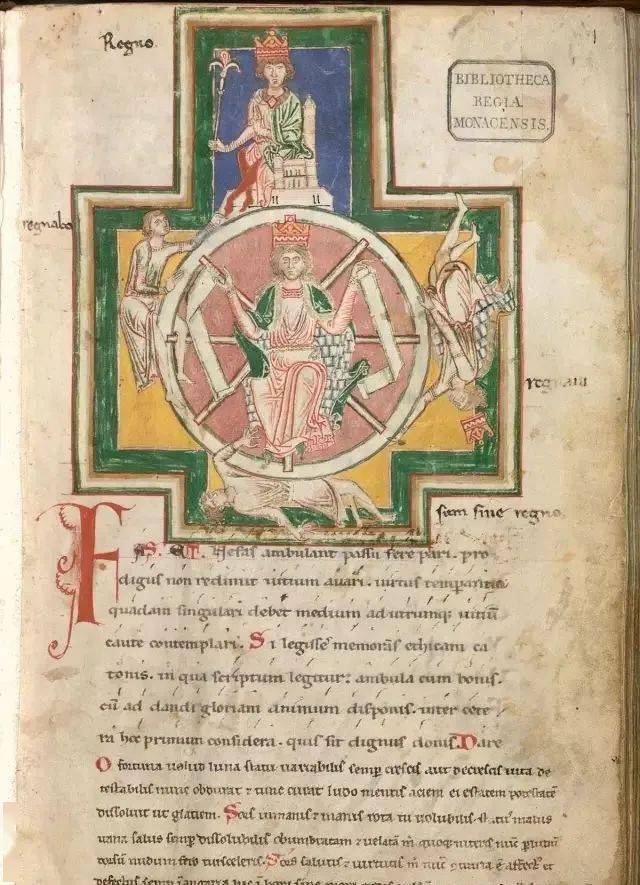 Regno.
BIBLIOTHECA
REGIA
MONACENSIS.
regnabo
regnaui
sum sine regno.
FAS. ET. Nefas ambulant passu fere pari. pro
digus non redimit uitium auari. uirtus temperantia
quadam singulari debet medium ad utrumq; uitiū
caute contemplari. Si legisse memoras ethicam ca
tonis. in qua scriptum legitur: ambula cum bonis.
cū ad dandi gloriam animum disponis. inter cete
ra hec primum considera. quis sit dignus donis. Dare
O fortuna uelud luna statu uariabilis semp crescis aut decrescis uita de
testabilis nunc obdurat ⁊ tunc curat ludo mentis aciem egestatem potestatē
dissoluit ut glatiem. Sors inmanis ⁊ inanis rota tu uolubilis status malus
uana salus semp dissolubilis obumbratam ⁊ uelatā m quoq; niteris nunc p ludum
dorsū nudum fero tui sceleris. Sors salutis ⁊ uirtutis m nunc ⁊traria ē affectꝰ et
defectus semp in angaria